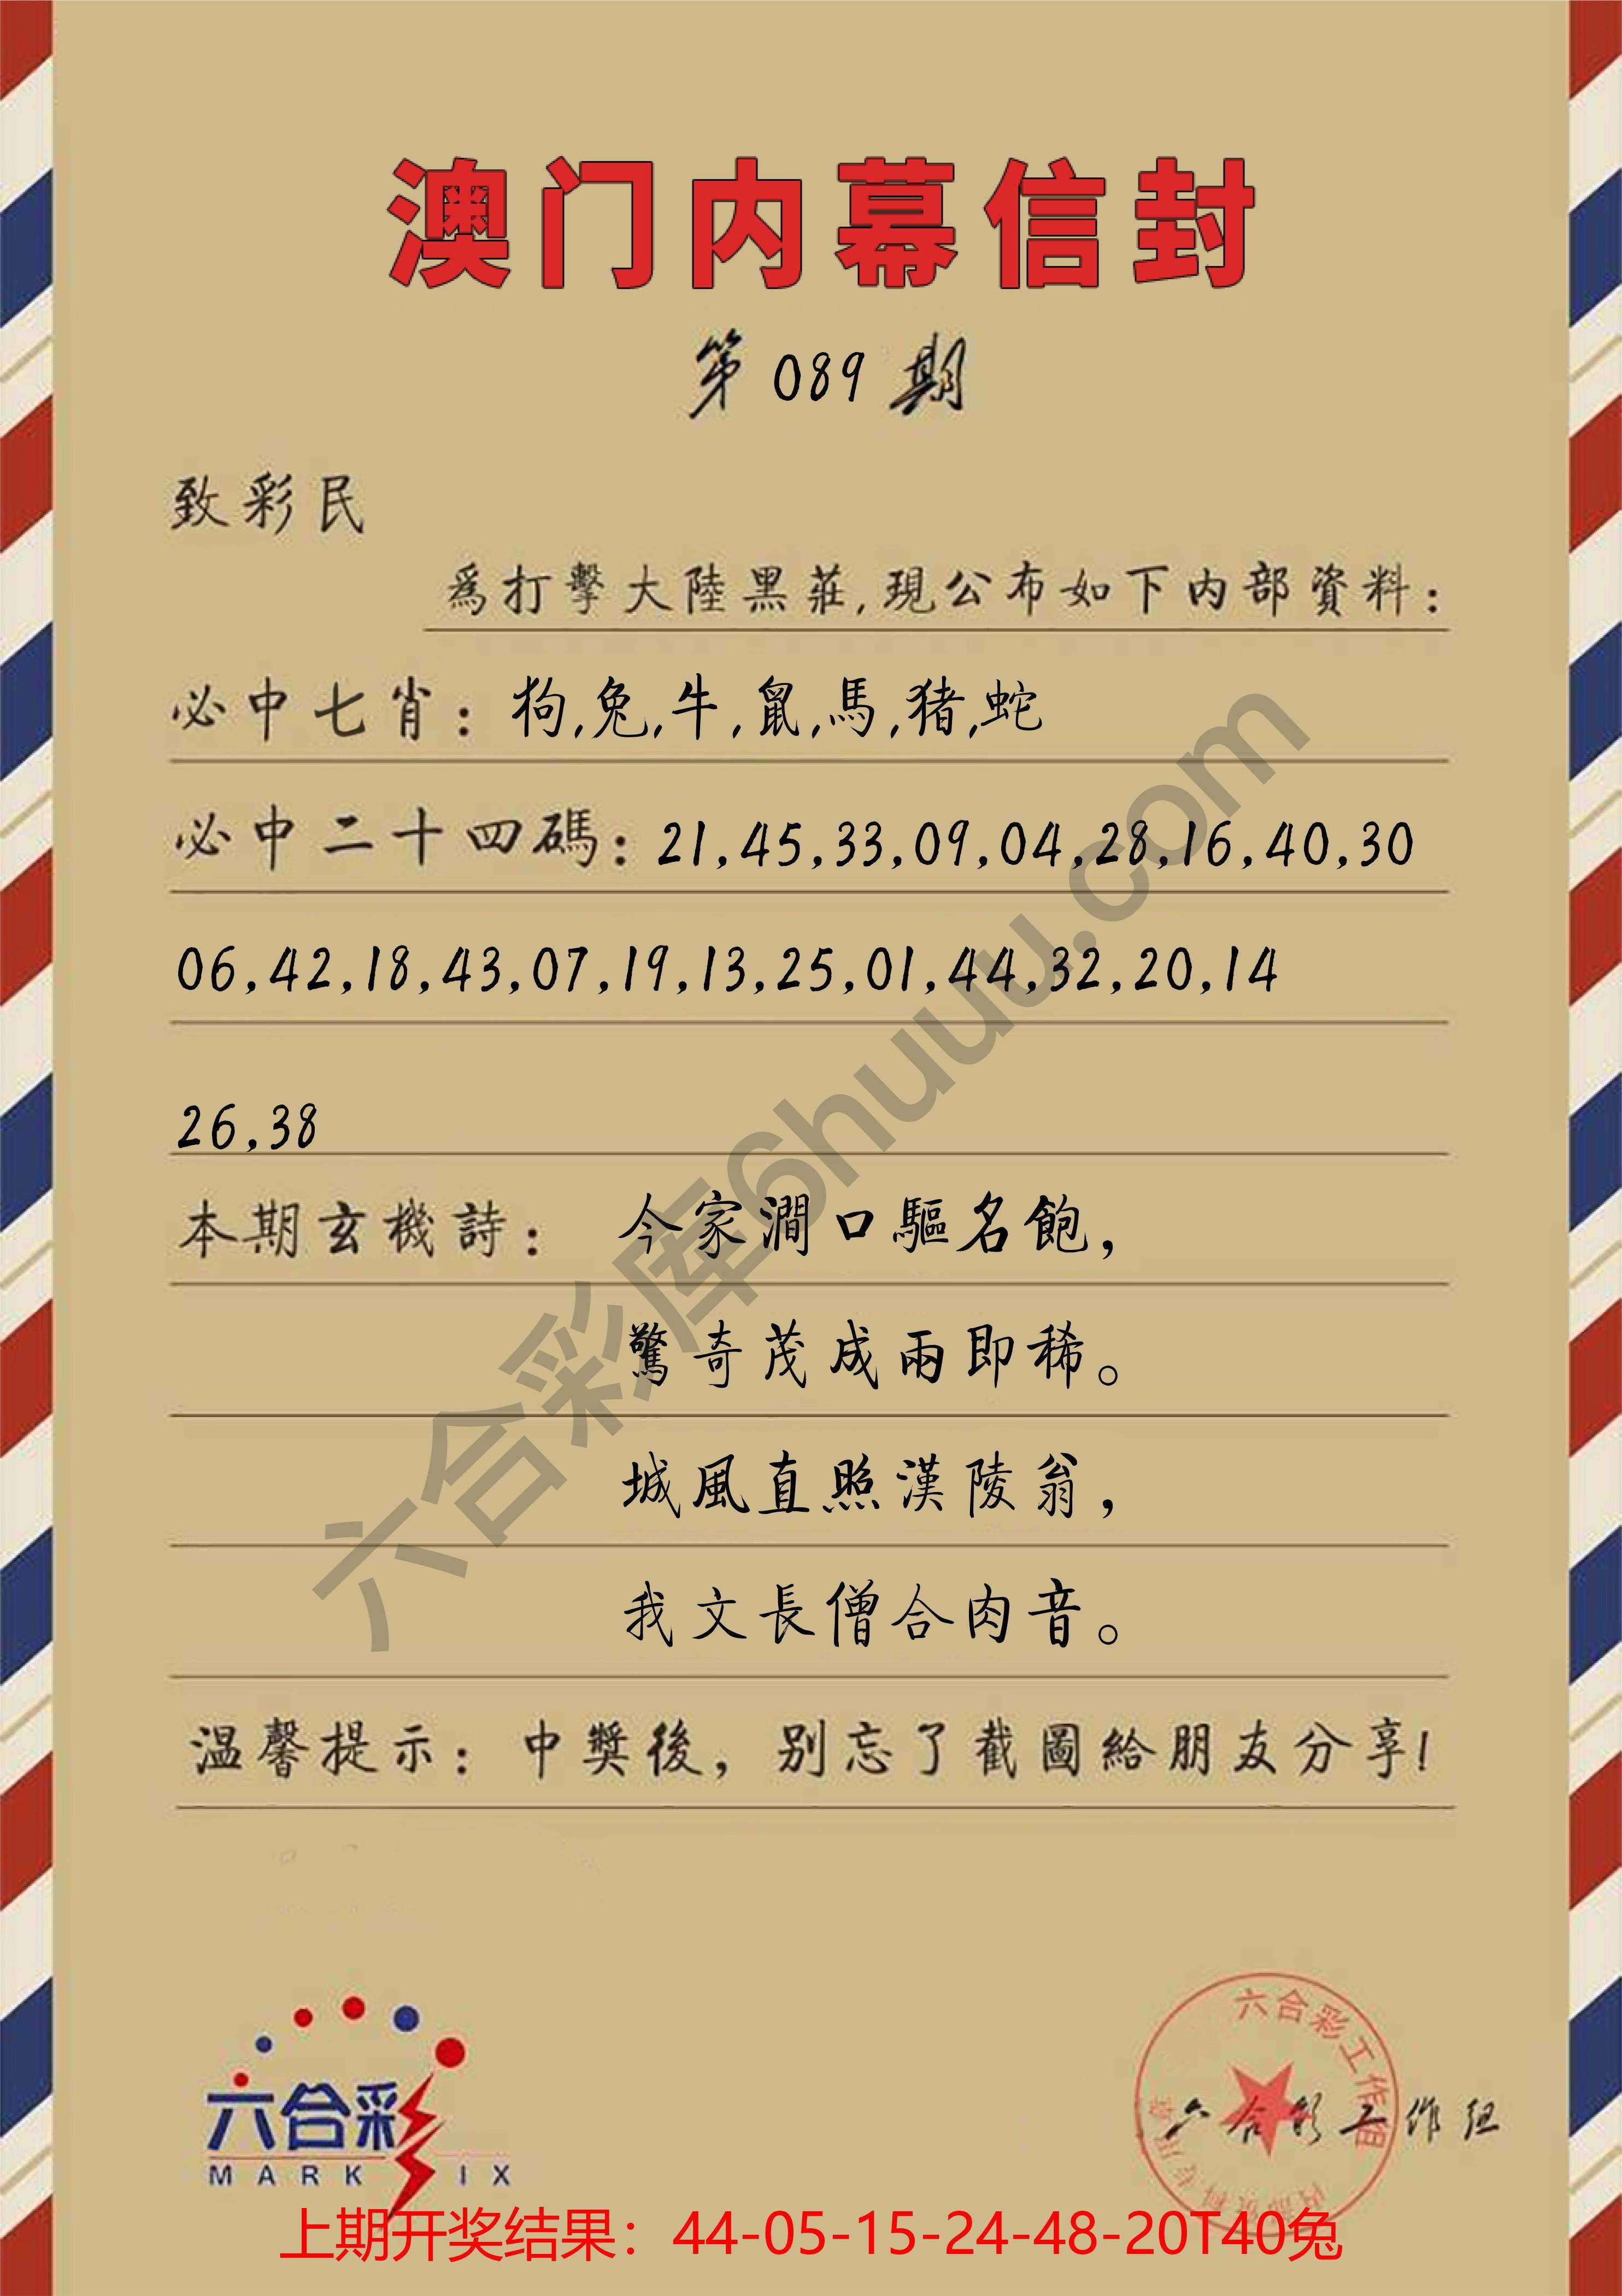 澳门内幕信封
第089期
致彩民
爲打擊大陸黑莊,現公布如下内部資料:
必中七肖:狗,兔,牛,鼠,馬,猪,蛇
必中二十四碼:21,45,33,09,04,28,16,40,30
06,42,18,43,07,19,13,25,01,44,32,20,14
26,38
本期玄機詩: 今家澗口驅名飽,
驚奇茂成兩即稀。
城風直照漢陵翁,
我文長僧合肉音。
温馨提示:中獎後,别忘了截圖給朋友分享!
六合彩库6huuu.com
六合彩
MARK IX
六合彩工作组
六合彩工作组
上期开奖结果:44-05-15-24-48-20T40兔